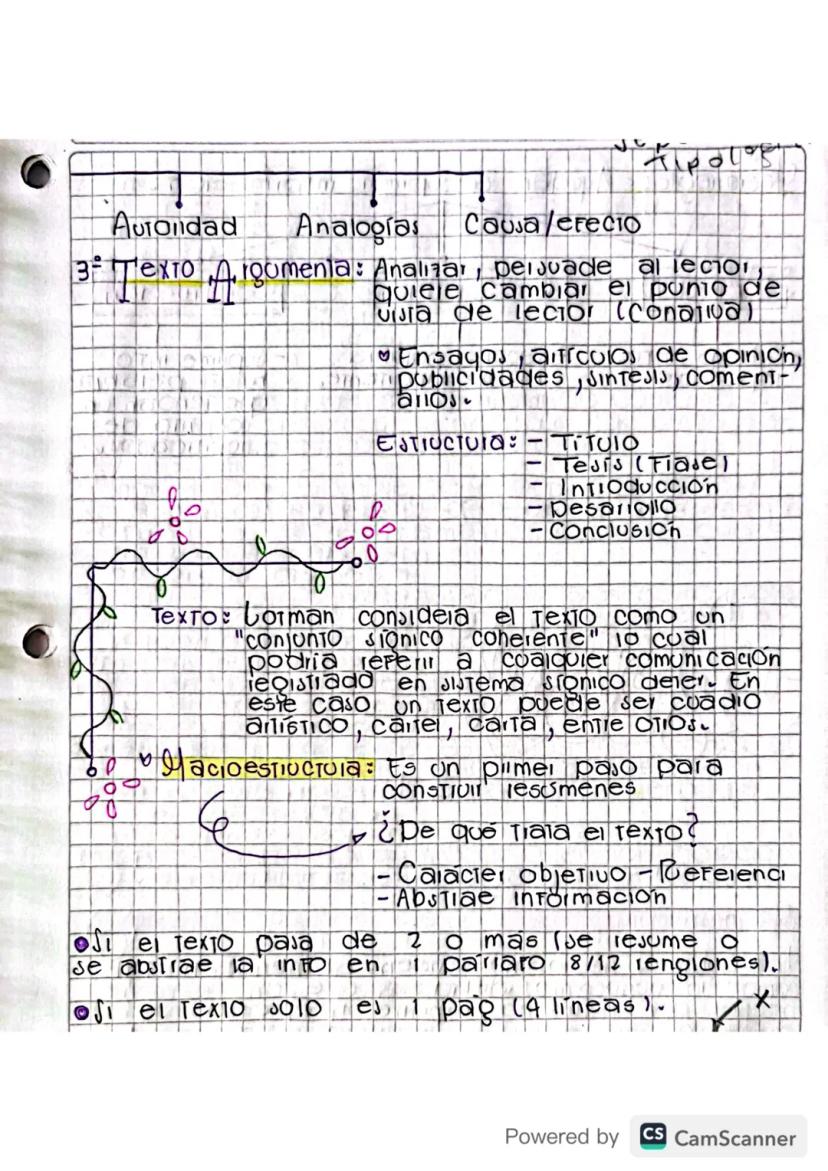 Tipolog
Autoridad Analogías Causa/efecto
3° Texto Argumenta: Analizar, persuade al lector,
quiere cambiar el punto de
vista de lector (conativa)
Ensayos, artículos de opinión,
publicidades, sintesis, coment-
arios.
Estructura: - Título
- Tesis (Frase)
- Introducción
- Desarrollo
- Conclusión
Texto: Lotman considera el texto como un
"conjunto sígnico coherente" lo cual
podría referir a coalquier comunicación
registrado en sistema sígnico deter. En
este caso un texto puede ser cuadro
artístico, cartel, carta, entre otros.
Macroestructura: Es un primer paso para
construir resúsmenes
¿De qué trata el texto?
- Carácter objetivo - Referenci
- Abstrae información
Si el texto pasa de 2 o más (se resume o
se abstrae la info en 1 párrafo 8/12 renglones).
Si el texto solo es 1 pág (4 líneas).
x
Powered by CS CamScanner